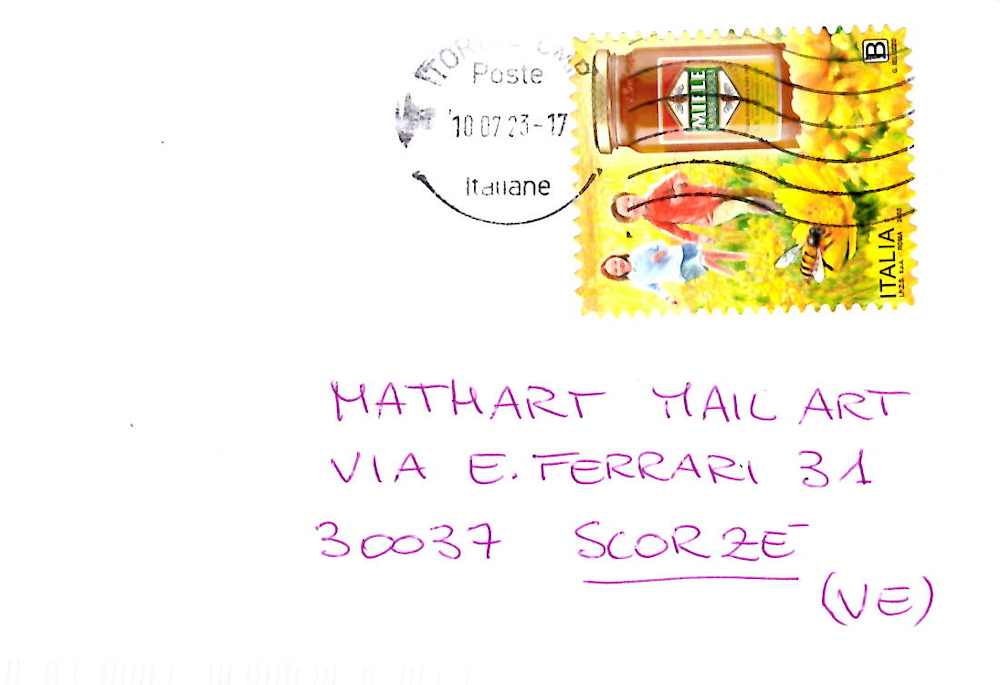 Poste
10 07 23-17
Italiane
MIELE
B
ITALIA
I.P.Z.S. S.p.A. - ROMA
MATHART MAIL ART
VIA E. FERRARI 31
30037 SCORZE
(VE)